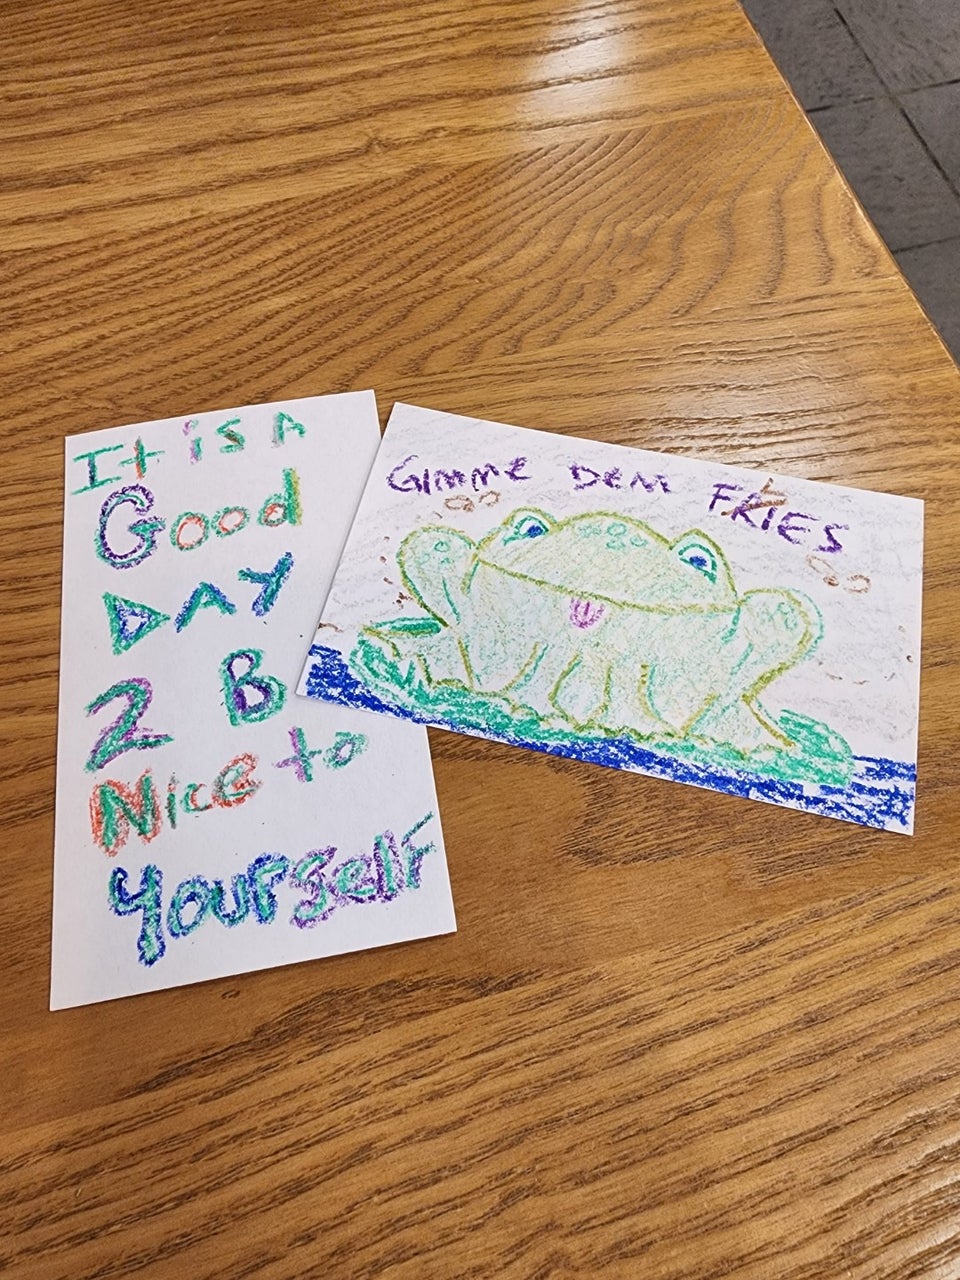 It is A
Good
DAY
2 B
Nice to
yourself
GIMME DEM FRIES